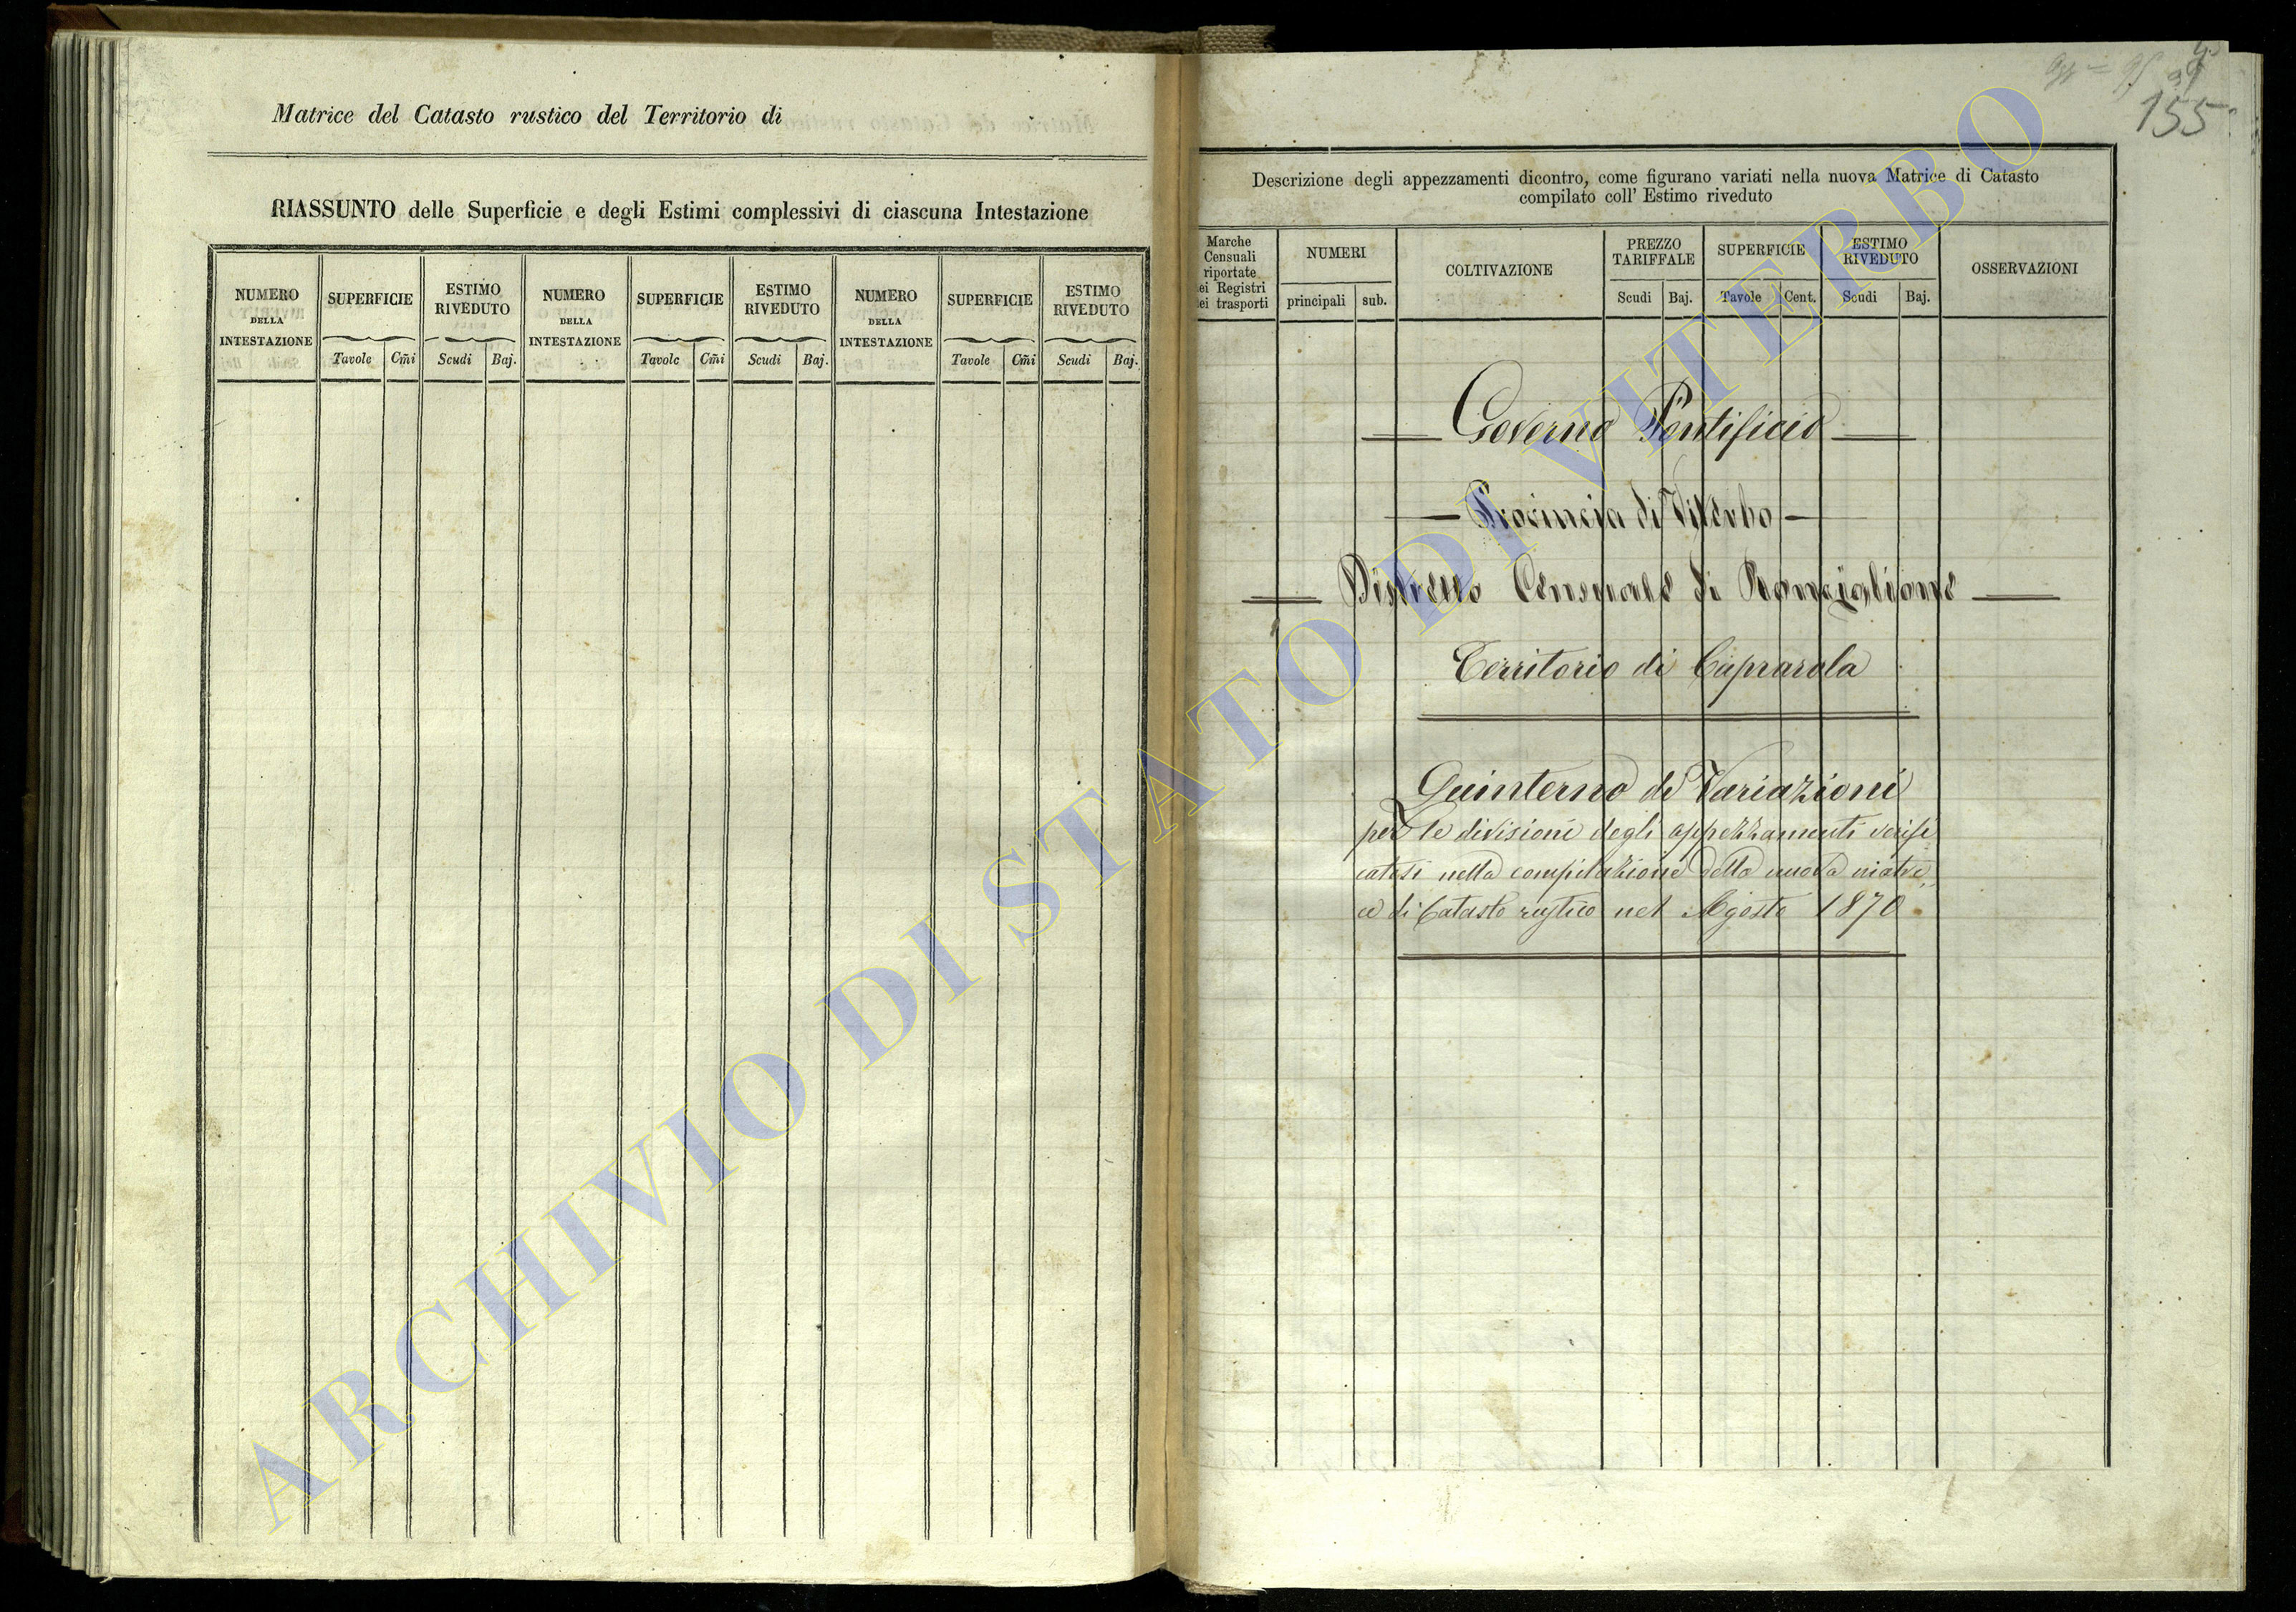 Matrice del Catasto rustico del Territorio di
RIASSUNTO delle Superficie e degli Estimi complessivi di ciascuna Intestazione
NUMERO DELLA INTESTAZIONE SUPERFICIE ESTIMO RIVEDUTO NUMERO DELLA INTESTAZIONE SUPERFICIE ESTIMO RIVEDUTO NUMERO DELLA INTESTAZIONE SUPERFICIE ESTIMO RIVEDUTO
Tavole Cm̃i Scudi Baj. Tavole Cm̃i Scudi Baj. Tavole Cm̃i Scudi Baj.
155
Descrizione degli appezzamenti dicontro, come figurano variati nella nuova Matrice di Catasto
compilato coll' Estimo riveduto
Marche
Censuali
riportate
ei Registri
ei trasporti
NUMERI
principali sub.
COLTIVAZIONE
PREZZO
TARIFFALE
Scudi Baj.
SUPERFICIE
Tavole Cent.
ESTIMO
RIVEDUTO
Scudi Baj.
OSSERVAZIONI
Governo Pontificio
Provincia di Viterbo
Distretto Censuale di Ronciglione
Territorio di Caprarola
Quinterno di Variazioni
per le divisioni degli appezzamenti verifi
catesi nella compilazione della nuova matri„
ce di Catasto rustico nel Agosto 1870
ARCHIVIO DI STATO DI VITERBO